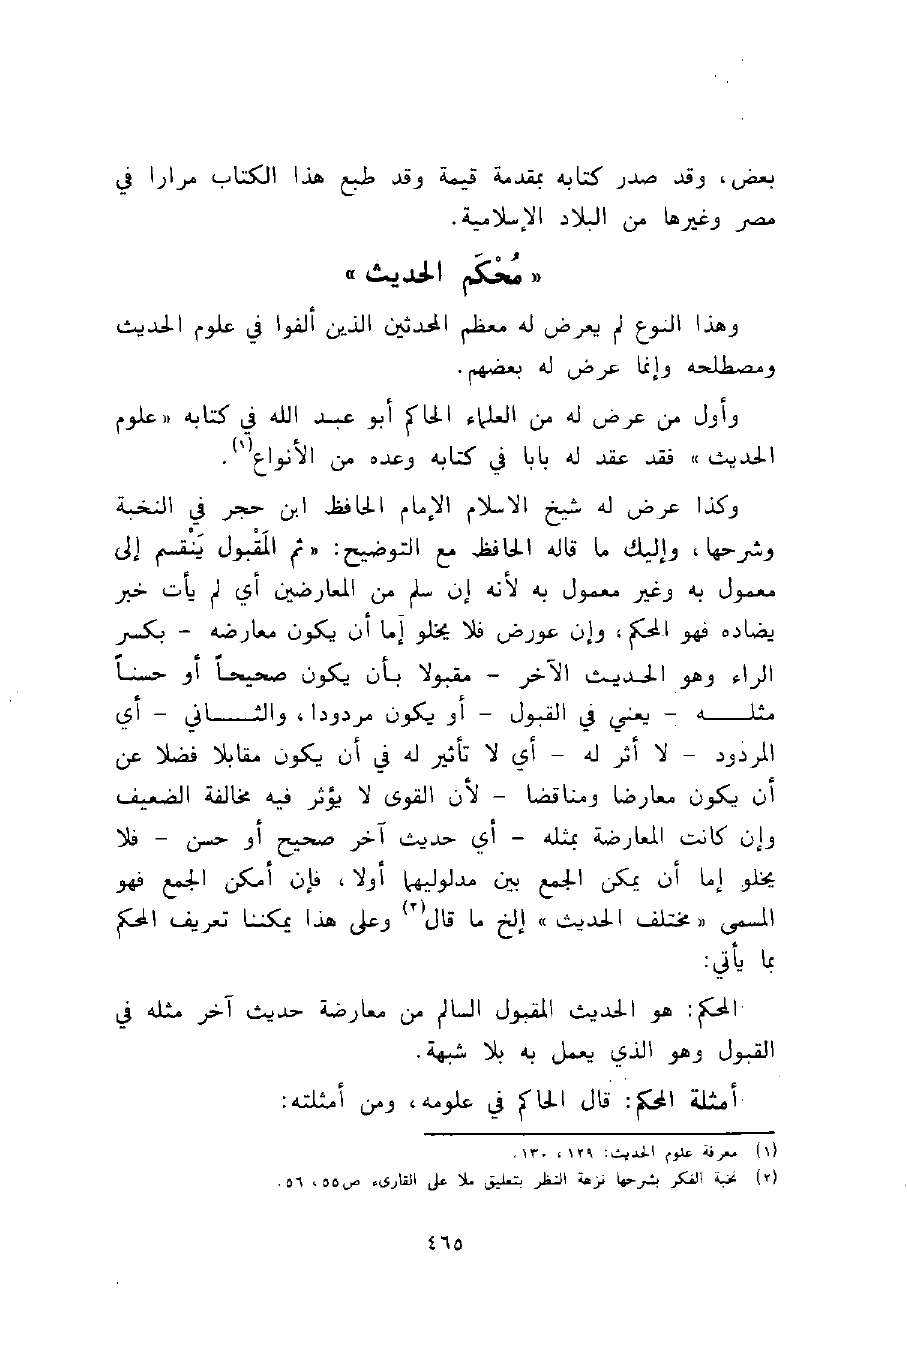 بعض، وقد صدر كتابه بمقدمة قيمة وقد طبع هذا الكتاب مرارا في
مصر وغيرها من البلاد الإسلامية.
« مُحْكَم الحديث »
وهذا النوع لم يعرض له معظم المحدثين الذين ألفوا في علوم الحديث
ومصطلحه وإنما عرض له بعضهم.
وأول من عرض له من العلماء الحاكم أبو عبد الله في كتابه «علوم
الحديث » فقد عقد له بابا في كتابه وعده من الأنواع(١).
وكذا عرض له شيخ الاسلام الإمام الحافظ ابن حجر في النخبة
وشرحها، وإليك ما قاله الحافظ مع التوضيح: «ثم المَقْبول يَنْقسم إلى
معمول به وغير معمول به لأنه إن سلم من المعارضين أي لم يأت خبر
يضاده فهو المحكم، وإن عورض فلا يخلو إما أن يكون معارضه - بكسر
الراء وهو الحديث الآخر - مقبولا بأن يكون صحيحاً أو حسناً
مثله - يعني في القبول - أو يكون مردودا، والثاني - أي
المردود - لا أثر له - أي لا تأثير له في أن يكون مقابلا فضلا عن
أن يكون معارضا ومناقضا - لأن القوى لا يؤثر فيه مخالفة الضعيف
وإن كانت المعارضة بمثله - أي حديث آخر صحيح أو حسن - فلا
يخلو إما أن يمكن الجمع بين مدلوليهما أولا، فإن أمكن الجمع فهو
المسمى «مختلف الحديث » إلخ ما قال(٢) وعلى هذا يمكننا تعريف المحكم
بما يأتي:
المحكم: هو الحديث المقبول السالم من معارضة حديث آخر مثله في
القبول وهو الذي يعمل به بلا شبهة.
أمثلة المحكم: قال الحاكم في علومه، ومن أمثلته:
(١) معرفة علوم الحديث: ١٢٩، ١٣٠.
(٢) نخبة الفكر بشرحها نزهة النظر بتعليق ملا على القارىء ص٥٥، ٥٦.
٤٦٥